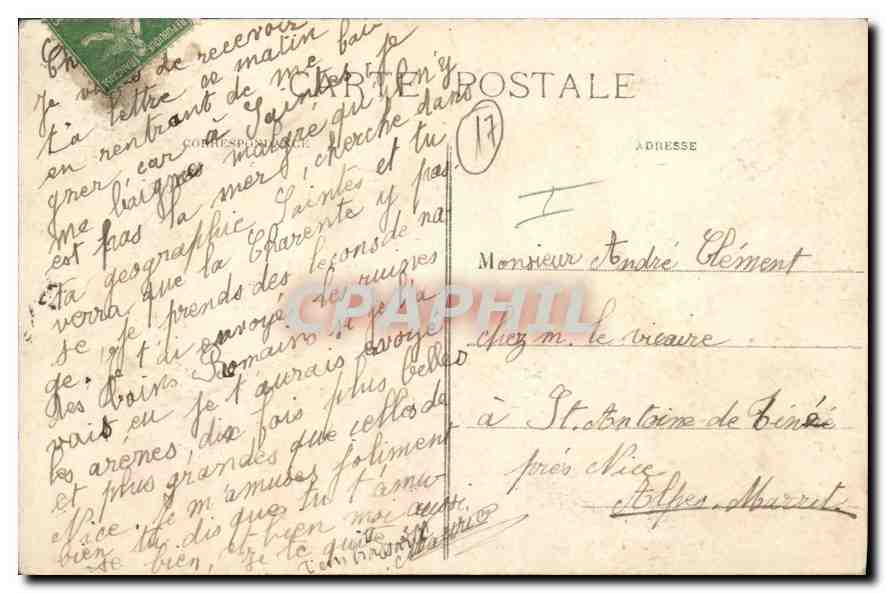 CARTE POSTALE
CORRESPONDANCE
ADRESSE
17
I
Je viens de recevoir
ta lettre ce matin
en rentrant de me bai
gner, car à Saintes je
me baigne malgré qu'il n'y
est pas la mer, cherche dans
ta geographie Saintes et tu
verra que la Charente y pas
se, je prends des leçons de na
ge. Je t'ai envoyé les ruines
des bains Romains si je l'a
vais eu je t'aurais envoyé
les arènes, dix fois plus belles
et plus grandes que celles de
Nice. Je m'amuse joliment
bien tu dis que tu t'amu
se bien, et bien moi aussi
Je te quitte
Maurice
Monsieur André Clément
chez m. le vicaire
à St. Antoine de Tinée
près Nice
Alpes-Marrit.
CPAPHIL